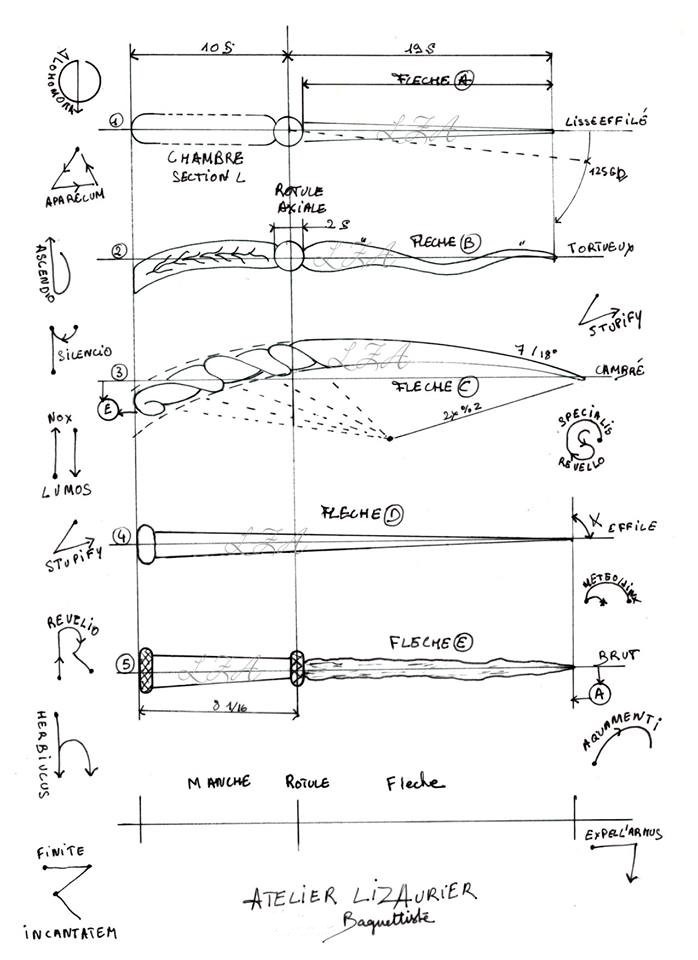 10 S
19 S
FLECHE A
ALOHOMORA
1
LZA
LISSE EFFILÉ
CHAMBRE
SECTION L
APARECUM
ROTULE
AXIALE
2 S
2
FLECHE B
LZA
TORTUEUX
ASCENDIO
STUPIFY
SILENCIO
LZA
7/18°
3
FLECHE C
CAMBRÉ
E
NOX
SPECIALIS
REVELLO
LUMOS
FLECHE D
4
LZA
X
EFFILE
STUPIFY
REVELIO
FLECHE E
5
LZA
BRUT
A
8 1/16
HERBIUCUS
AQUAMENTI
MANCHE ROTULE Fleche
EXPELL'ARMUS
FINITE
INCANTATEM
ATELIER LIZAURIER
Baguettiste